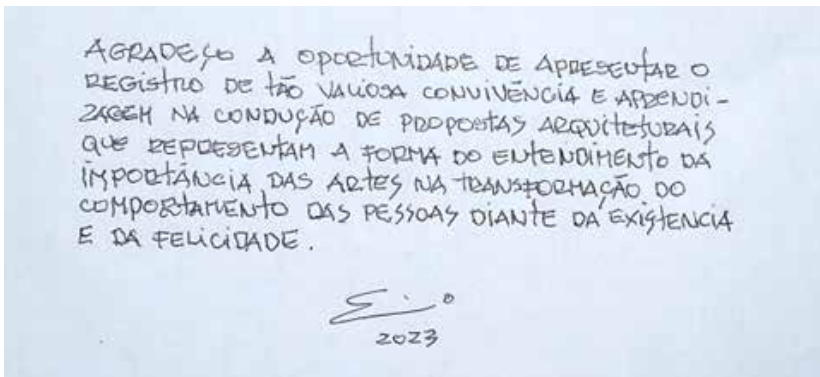 AGRADEÇO A OPORTUNIDADE DE APRESENTAR O
REGISTRO DE TÃO VALIOSA CONVIVÊNCIA E APRENDI-
ZAGEM NA CONDUÇÃO DE PROPOSTAS ARQUITETURAIS
QUE REPRESENTAM A FORMA DO ENTENDIMENTO DA
IMPORTÂNCIA DAS ARTES NA TRANSFORMAÇÃO DO
COMPORTAMENTO DAS PESSOAS DIANTE DA EXISTENCIA
E DA FELICIDADE.
2023